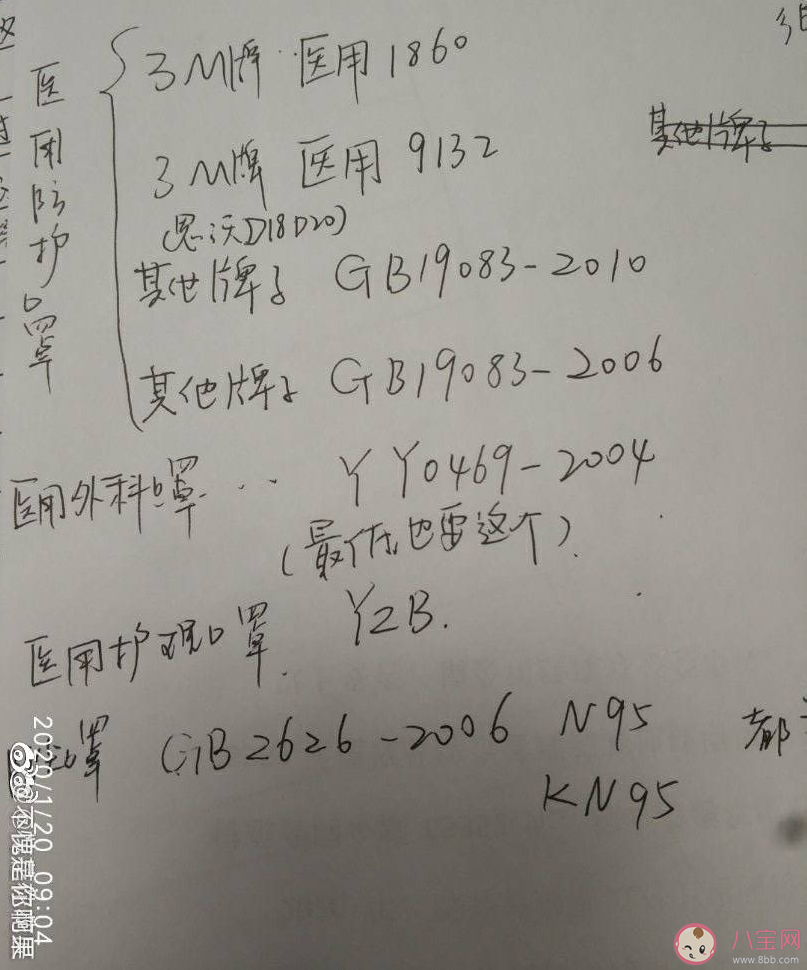 医用防护口罩
3M牌 医用1860
3M牌 医用 9132
(思沃D18D20)
其他牌子 GB19083-2010
其他牌子 GB19083-2006
医用外科口罩... YY0469-2004
(最低也要这个)
医用护理口罩 YZB.
口罩 GB2626-2006 N95
KN95
都
其他牌子
2020/1/20 09:04
@不愧是你啊果
八宝网
www.8bb.com